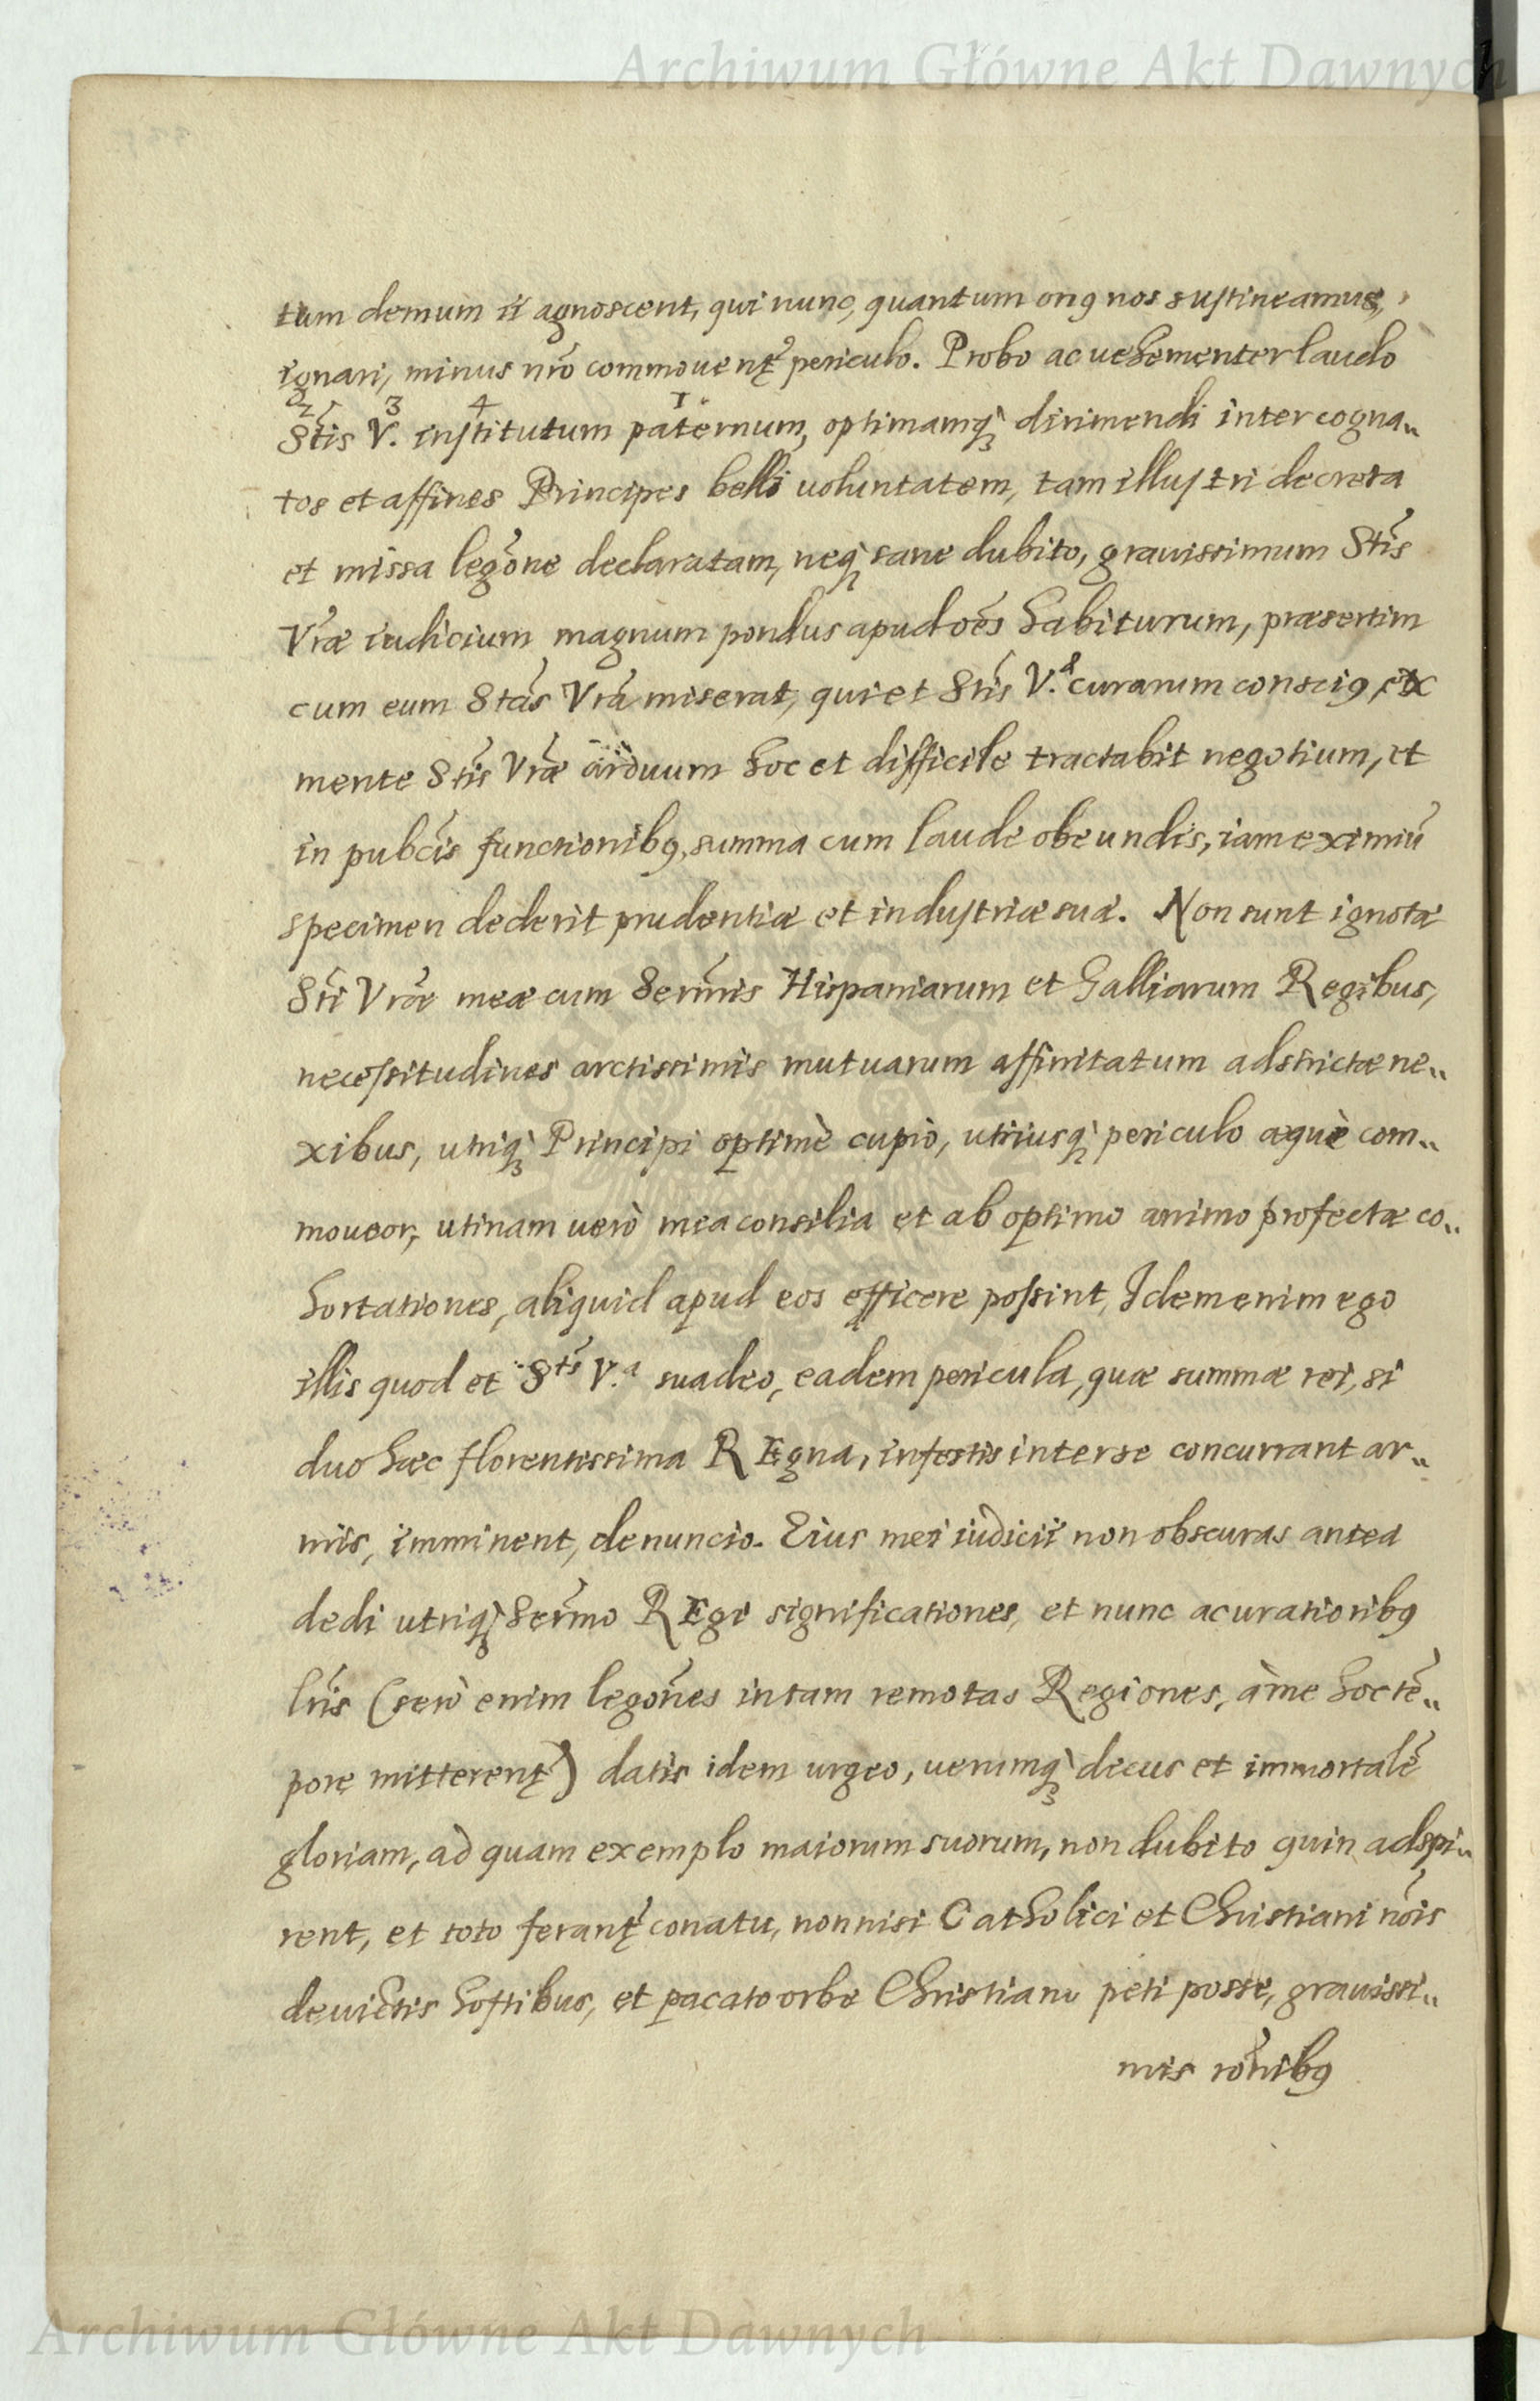 Archiwum Główne Akt Dawnych
tum demum ii agnoscent, qui nunc, quantum onq nos sustineamus,
ignari, minus nrõ commouent̃ periculo. Probo ac uehementer laudo
2 3 4 1
Stĩs V. institutum paternum, optimamq; dirimendi inter cogna„
tos et affines Principes belli uoluntatem, tam illustri decreta
et missa legõne declaratam, neq; sane dubito, grauissimum Stĩs
Vrãe iudicium magnum pondus apud oẽs habiturum, præsertim
cum eum Stãs Vrã miserat, qui et Stĩs V. curarum consciq, ex
mente Stĩs Vrãe arduum hoc et difficile tractabit negotium, et
in pubcĩs functionibq, summa cum laude obeundis, iam eximiũ
specimen dederit prudentiæ et industriæ suæ. Non sunt ignotæ
Stĩ Vrãe meæ cum Serm̃is Hispaniarum et Galliarum Regibus,
necessitudines arctissimis mutuarum affinitatum adstrictæ ne„
xibus, utriq; Principi optimè cupio, utriusq; periculo æquè com„
moueor, utinam uerò mea consilia et ab optimo animo profectæ co„
hortationes, aliquid apud eos efficere possint, Idem enim ego
illis quod et Stis V.a suadeo, eadem pericula, quæ summæ rei, si
duo hæc florentissima REgna, infestis inter se concurrant ar„
mis, imminent, denuncio. Eius mei iudicii non obscuras antea
dedi utriq; Serm̃o REgi significationes, et nunc acuratioribq
lrĩs (serò enim legõnes in tam remotas Regiones, à me hoc tẽ„
pore mitterent̃) datis idem urgeo, uerumq; decus et immortalẽ
gloriam, ad quam exemplo maiorum suorum, non dubito quin adspi„
rent, et toto ferant̃ conatu, nonnisi Catholici et Christiani nõis
deuictis hostibus, et pacato orbe Christiano peti posse, grauissi„
mis rõnibq
Archiwum Główne Akt Dawnych